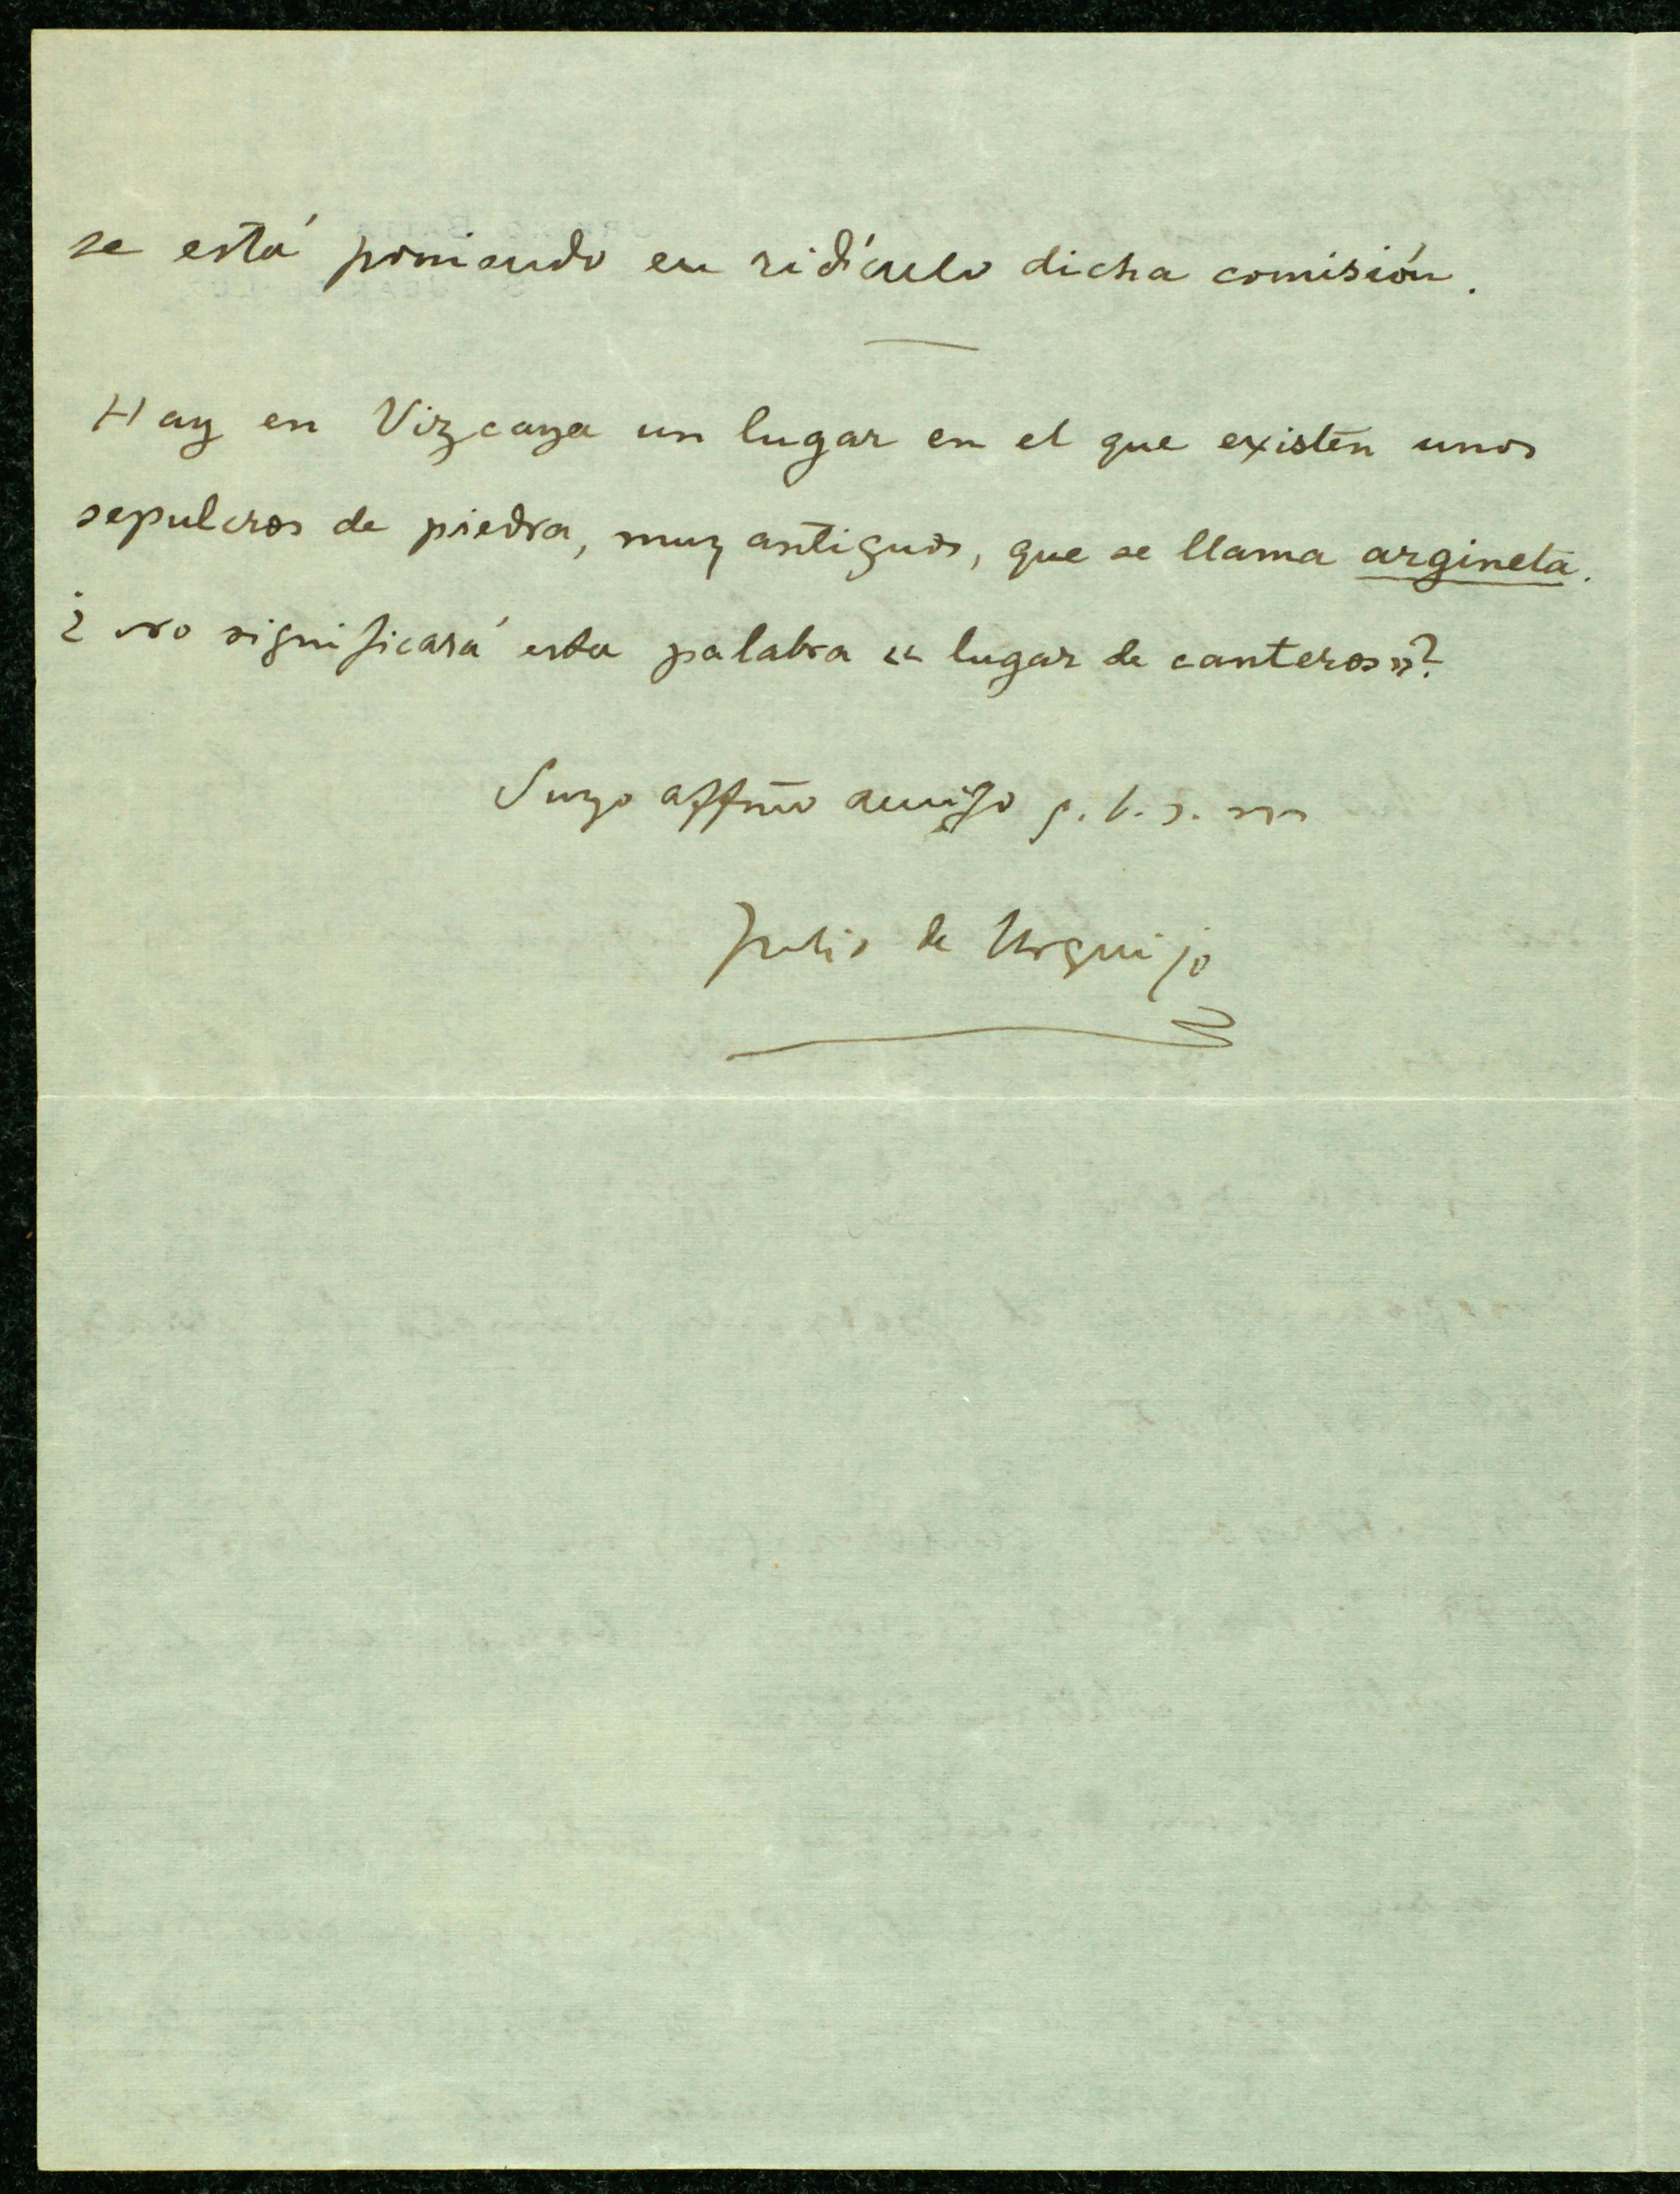 se está poniendo en ridículo dicha comisión.
Hay en Vizcaya un lugar en el que existen unos
sepulcros de piedra, muy antiguos, que se llama argineta.
¿ no significará esta palabra « lugar de canteros»?
Suyo affmo amigo q. b. s. m
Julio de Urquijo